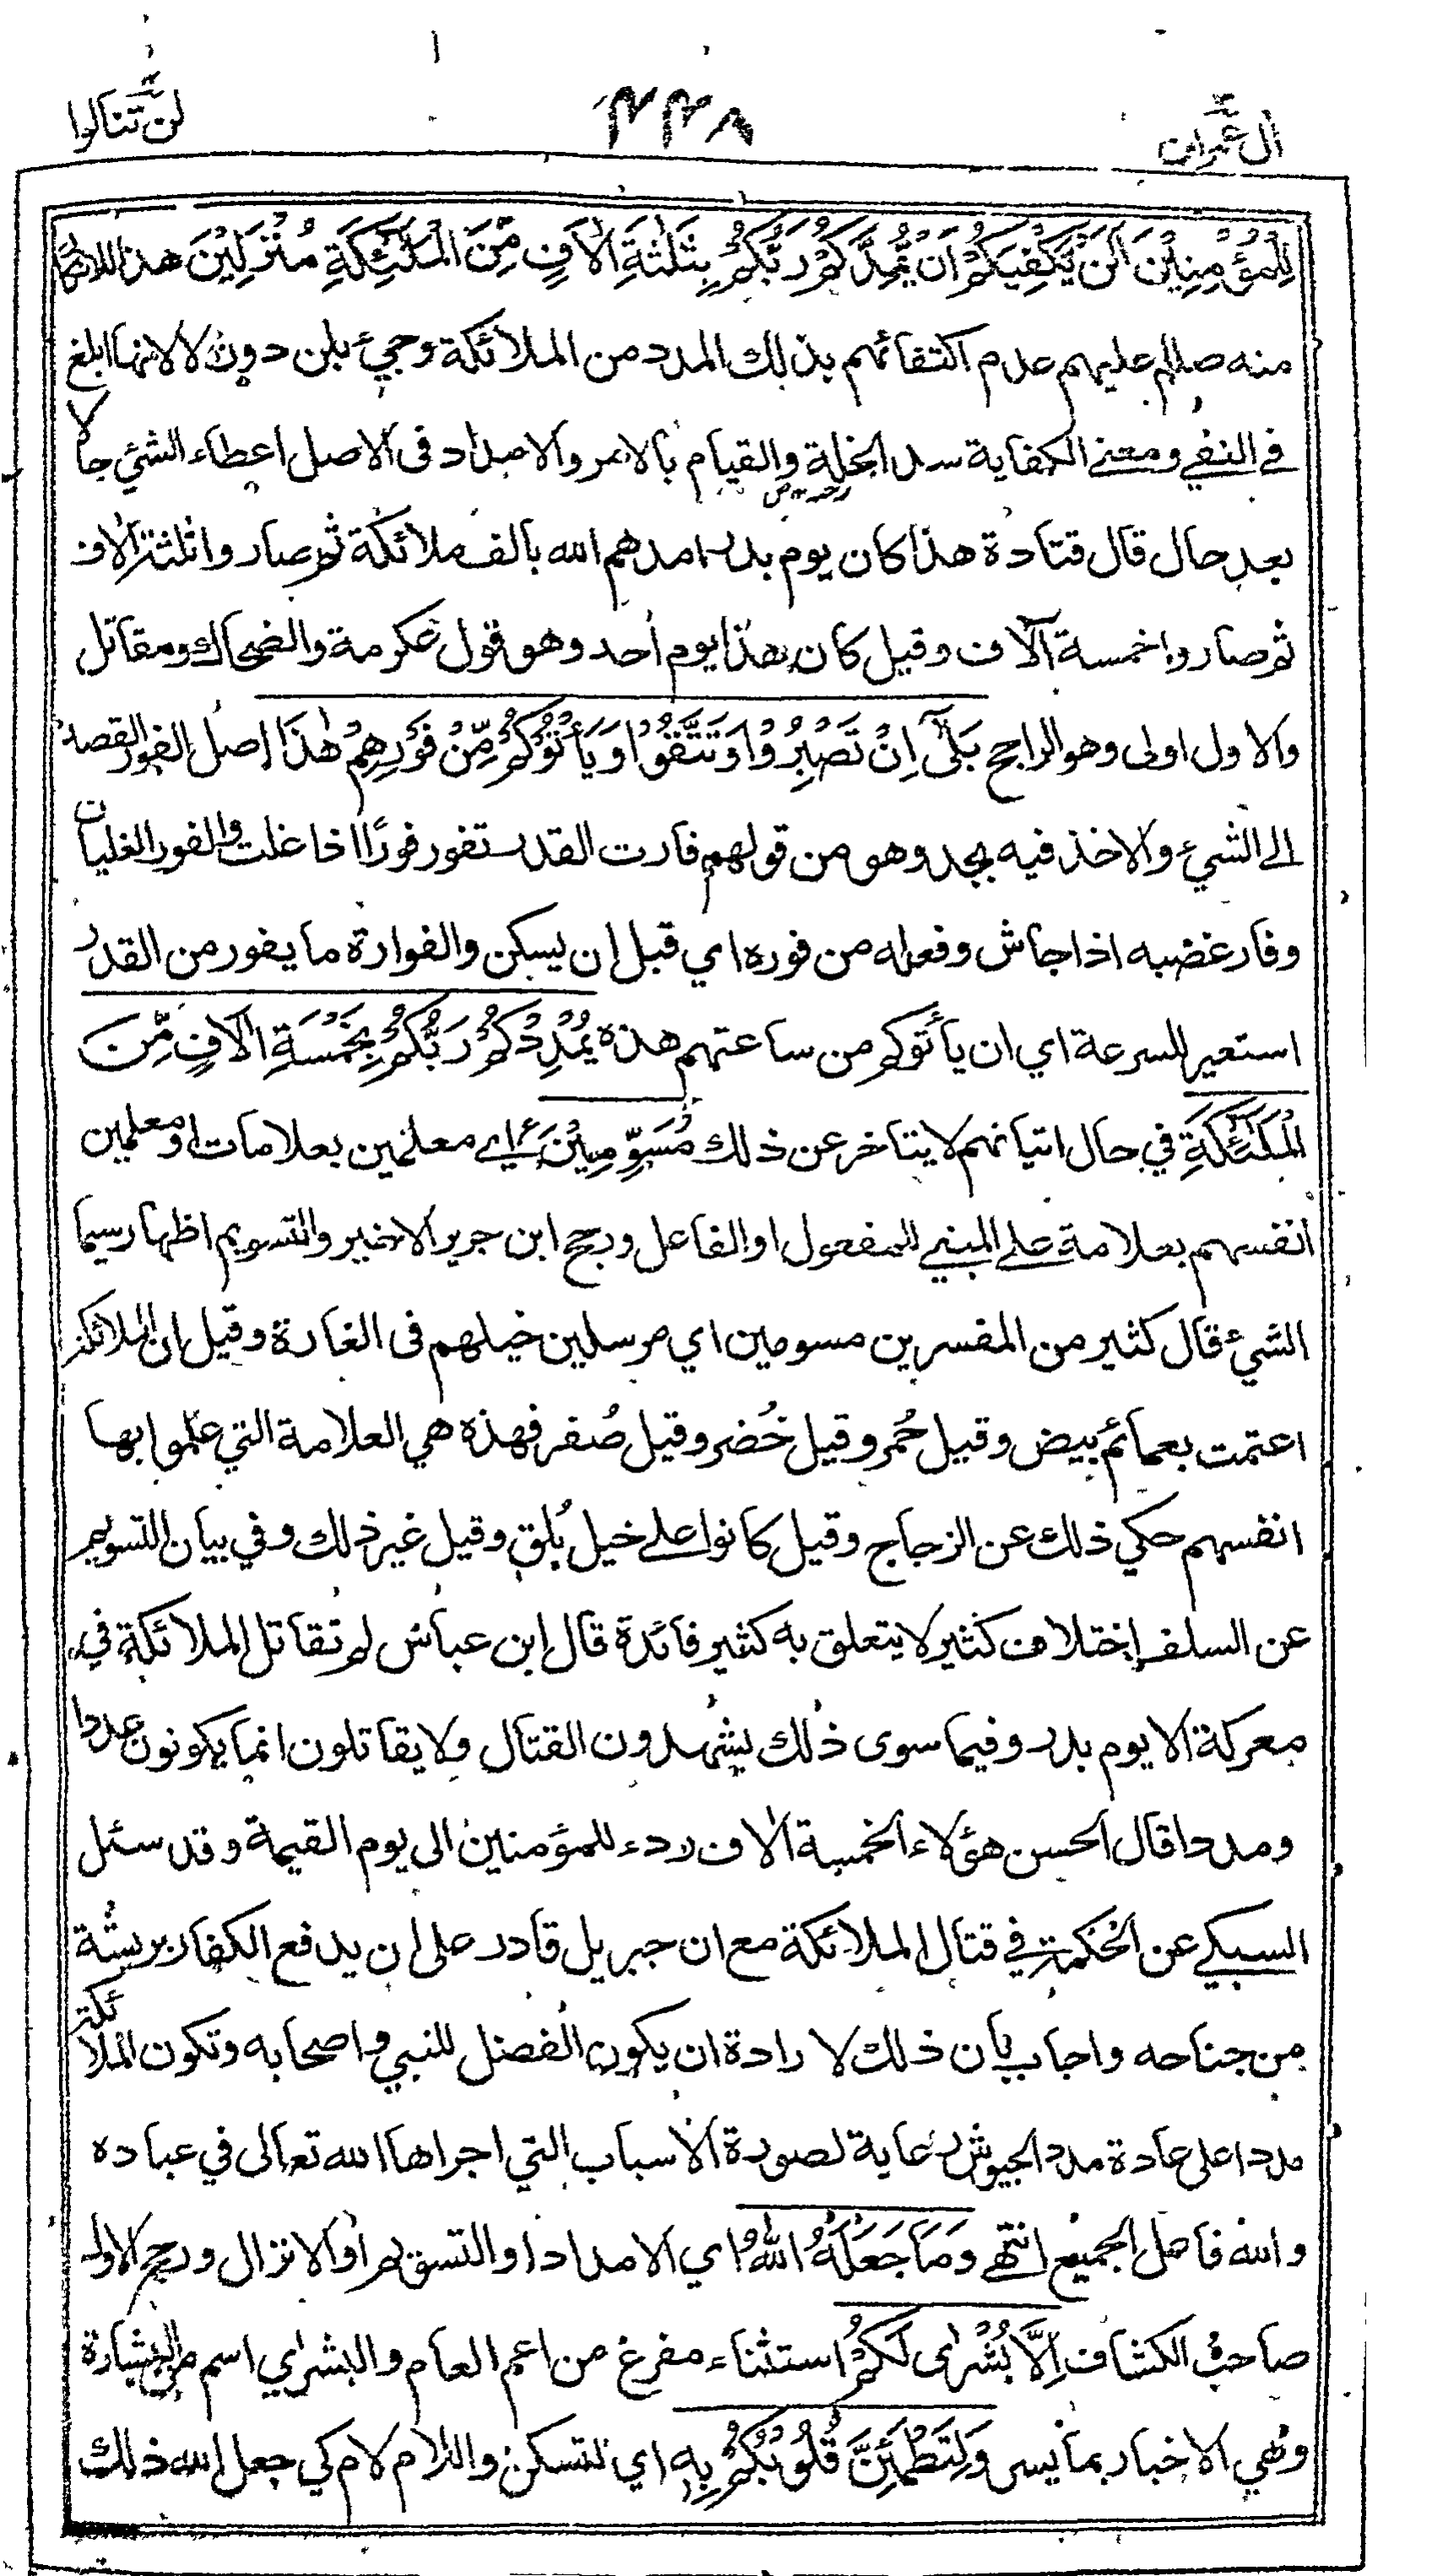 لن تنالوا ٤٤٨ آل عمران
لِلْمُؤْمِنِيْنَ اَلَنْ يَّكْفِيَكُمْ اَنْ يُّمِدَّكُمْ رَبُّكُمْ بِثَلٰثَةِ اٰلَافٍ مِّنَ الْمَلٰٓئِكَةِ مُنْزَلِيْنَ هذا الانكار
منه صللم عليهم عدم اكتفائهم بذلك المدد من الملائكة وجئ بلن دون لا لانها ابلغ
في النفي ومعنى الكفاية سد الخلة والقيام بالامر والامداد فى الاصل اعطاء الشئ حالا
بعد حال قال قتادة هذا كان يوم بدر امدهم الله بالف ملائكة ثم صاروا ثلثة آلاف
ثم صاروا خمسة آلاف وقيل كان هذا يوم أحد وهو قول عكرمة والضحاك ومقاتل
والاول اولى وهو الراجح بَلٰٓى اِنْ تَصْبِرُوْا وَتَتَّقُوْا وَيَأْتُوْكُمْ مِّنْ فَوْرِهِمْ هٰذَا اصل الفور القصد
الى الشئ والاخذ فيه بجد وهو من قولهم فارت القدر تفور فورًا اذا غلت والفور الغليان
وفار غضبه اذا جاش وفعله من فوره اي قبل ان يسكن والفوارة ما يفور من القدر
استعير للسرعة اي ان يأتوكم من ساعتهم هذه يُمْدِدْكُمْ رَبُّكُمْ بِخَمْسَةِ اٰلَافٍ مِّنَ
الْمَلٰٓئِكَةِ في حال اتيانهم لا يتاخر عن ذلك مُسَوِّمِيْنَ اي معلمين بعلامات او معلمين
انفسهم بعلامة على المبني للمفعول او الفاعل ورجح ابن جرير الاخير والتسويم اظهار سيما
الشئ قال كثير من المفسرين مسومين اي مرسلين خيلهم فى الغارة وقيل ان الملائكة
اعتمت بعمائم بيض وقيل حُمر وقيل خُضر وقيل صُفر فهذه هي العلامة التي علموا بها
انفسهم حكي ذلك عن الزجاج وقيل كانوا على خيل بُلق وقيل غير ذلك وفي بيان التسويم
عن السلف اختلاف كثير لا يتعلق به كثير فائدة قال ابن عباس لم تقاتل الملائكة في
معركة الا يوم بدر وفيما سوى ذلك يشهدون القتال ولا يقاتلون انما يكونون عددا
ومددا قال الحسن هؤلاء الخمسة آلاف ردء للمؤمنين الى يوم القيمة وقد سئل
السبكي عن الحكمة في قتال الملائكة مع ان جبريل قادر على ان يدفع الكفار بريشة
من جناحه واجاب بأن ذلك لارادة ان يكون الفضل للنبي واصحابه وتكون الملائكة
مددا على عادة مدد الجيوش رعاية لصورة الاسباب التي اجراها الله تعالى في عباده
والله فاعل الجميع انتهى وَمَا جَعَلَهُ اللهُ اي الامداد او التسويم او الانزال ورجح الاول
صاحب الكشاف اِلَّا بُشْرٰى لَكُمْ استثناء مفرغ من اعم العام والبشراي اسم من البشارة
وهي الاخبار بما يسر وَلِتَطْمَئِنَّ قُلُوْبُكُمْ بِهٖ اي لتسكن واللام لام كي جعل الله ذلك